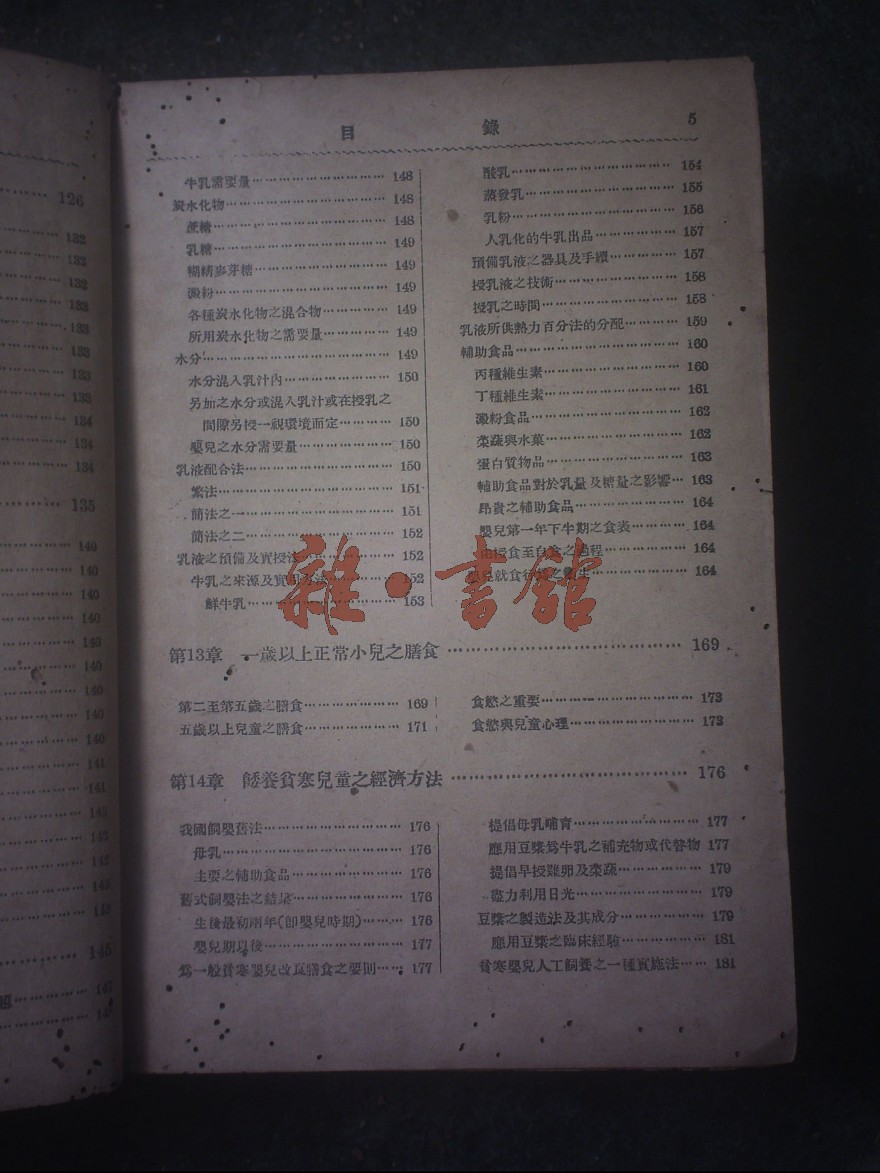 126
132
132
132
133
133
133
133
134
134
134
135
140
140
140
140
140
140
140
140
140
141
141
142
142
143
143
145
147
目 錄 5
牛乳需要量 148
炭水化物 148
蔗糖 148
乳糖 149
糊精麥芽糖 149
澱粉 149
各種炭水化物之混合物 149
所用炭水化物之需要量 149
水分 149
水分混入乳汁內 150
另加之水分或混入乳汁或在授乳之
間隙另授一視環境而定 150
嬰兒之水分需要量 150
乳液配合法 150
繁法 151
簡法之一 151
簡法之二 152
乳液之預備及實授法 152
牛乳之來源及實用方法 152
鮮牛乳 153
酸乳 154
蒸發乳 155
乳粉 156
人乳化的牛乳出品 157
預備乳液之器具及手續 157
授乳液之技術 158
授乳之時間 158
乳液所供熱力百分法的分配 159
輔助食品 160
丙種維生素 160
丁種維生素 161
澱粉食品 162
菜蔬與水菓 162
蛋白質物品 163
輔助食品對於乳量及糖量之影響 163
昂貴之輔助食品 164
嬰兒第一年下半期之食表 164
由授食至自食之過程 164
164
雜·書館
第13章 一歲以上正常小兒之膳食 169
第二至第五歲之膳食 169
五歲以上兒童之膳食 171
食慾之重要 173
食慾與兒童心理 173
第14章 餧養貧寒兒童之經濟方法 176
我國飼嬰舊法 176
母乳 176
主要之輔助食品 176
舊式飼嬰法之結果 176
生後最初兩年(卽嬰兒時期) 176
嬰兒期以後 177
爲一般貧寒嬰兒改良膳食之要則 177
提倡母乳哺育 177
應用豆漿爲牛乳之補充物或代替物 177
提倡早授雞卵及菜蔬 179
盡力利用日光 179
豆漿之製造法及其成分 179
應用豆漿之臨床經驗 181
貧寒嬰兒人工飼養之一種實施法 181